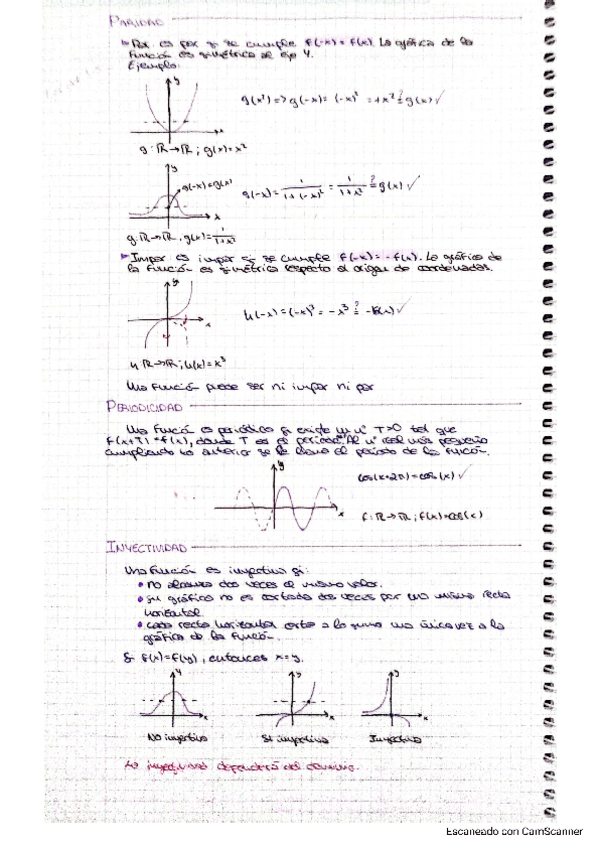 PARIDAD
Par: es par si se cumple f(-x) = f(x). La gráfica de la
función es simétrica al eje Y.
Ejemplo:
y
g(x²) => g(-x) = (-x)² = +x² ?= g(x) ✓
x
g: ℝ→ℝ; g(x)=x²
y
g(-x)=g(x)
g(-x) = 1/(1+(-x)²) = 1/(1+x²) ?= g(x) ✓
x
g: ℝ→ℝ, g(x)=1/(1+x²)
Impar: es impar si se cumple f(-x) = -f(x). La gráfica de
la función es simétrica respecto al origen de coordenadas.
y
h(-x) = (-x)³ = -x³ ?= -h(x) ✓
x
h: ℝ→ℝ; h(x)=x³
Una función puede ser ni impar ni par
PERIODICIDAD
Una función es periódica si existe un nº T>0 tal que
f(x+T) = f(x), donde T es el periodo. Al nº real más pequeño
cumpliendo lo anterior se le llama el periodo de la función.
y
cos(x+2π) = cos(x) ✓
x
f: ℝ→ℝ; f(x)=cos(x)
INYECTIVIDAD
Una función es inyectiva si:
• no alcanza dos veces el mismo valor.
• su gráfica no es cortada dos veces por una misma recta
horizontal.
• cada recta horizontal corta a lo sumo una única vez a la
gráfica de la función.
Si f(x)=f(y), entonces x=y.
y y y
x x x
No inyectiva Sí inyectiva Inyectiva
La inyectividad dependerá del dominio.
Escaneado con CamScanner